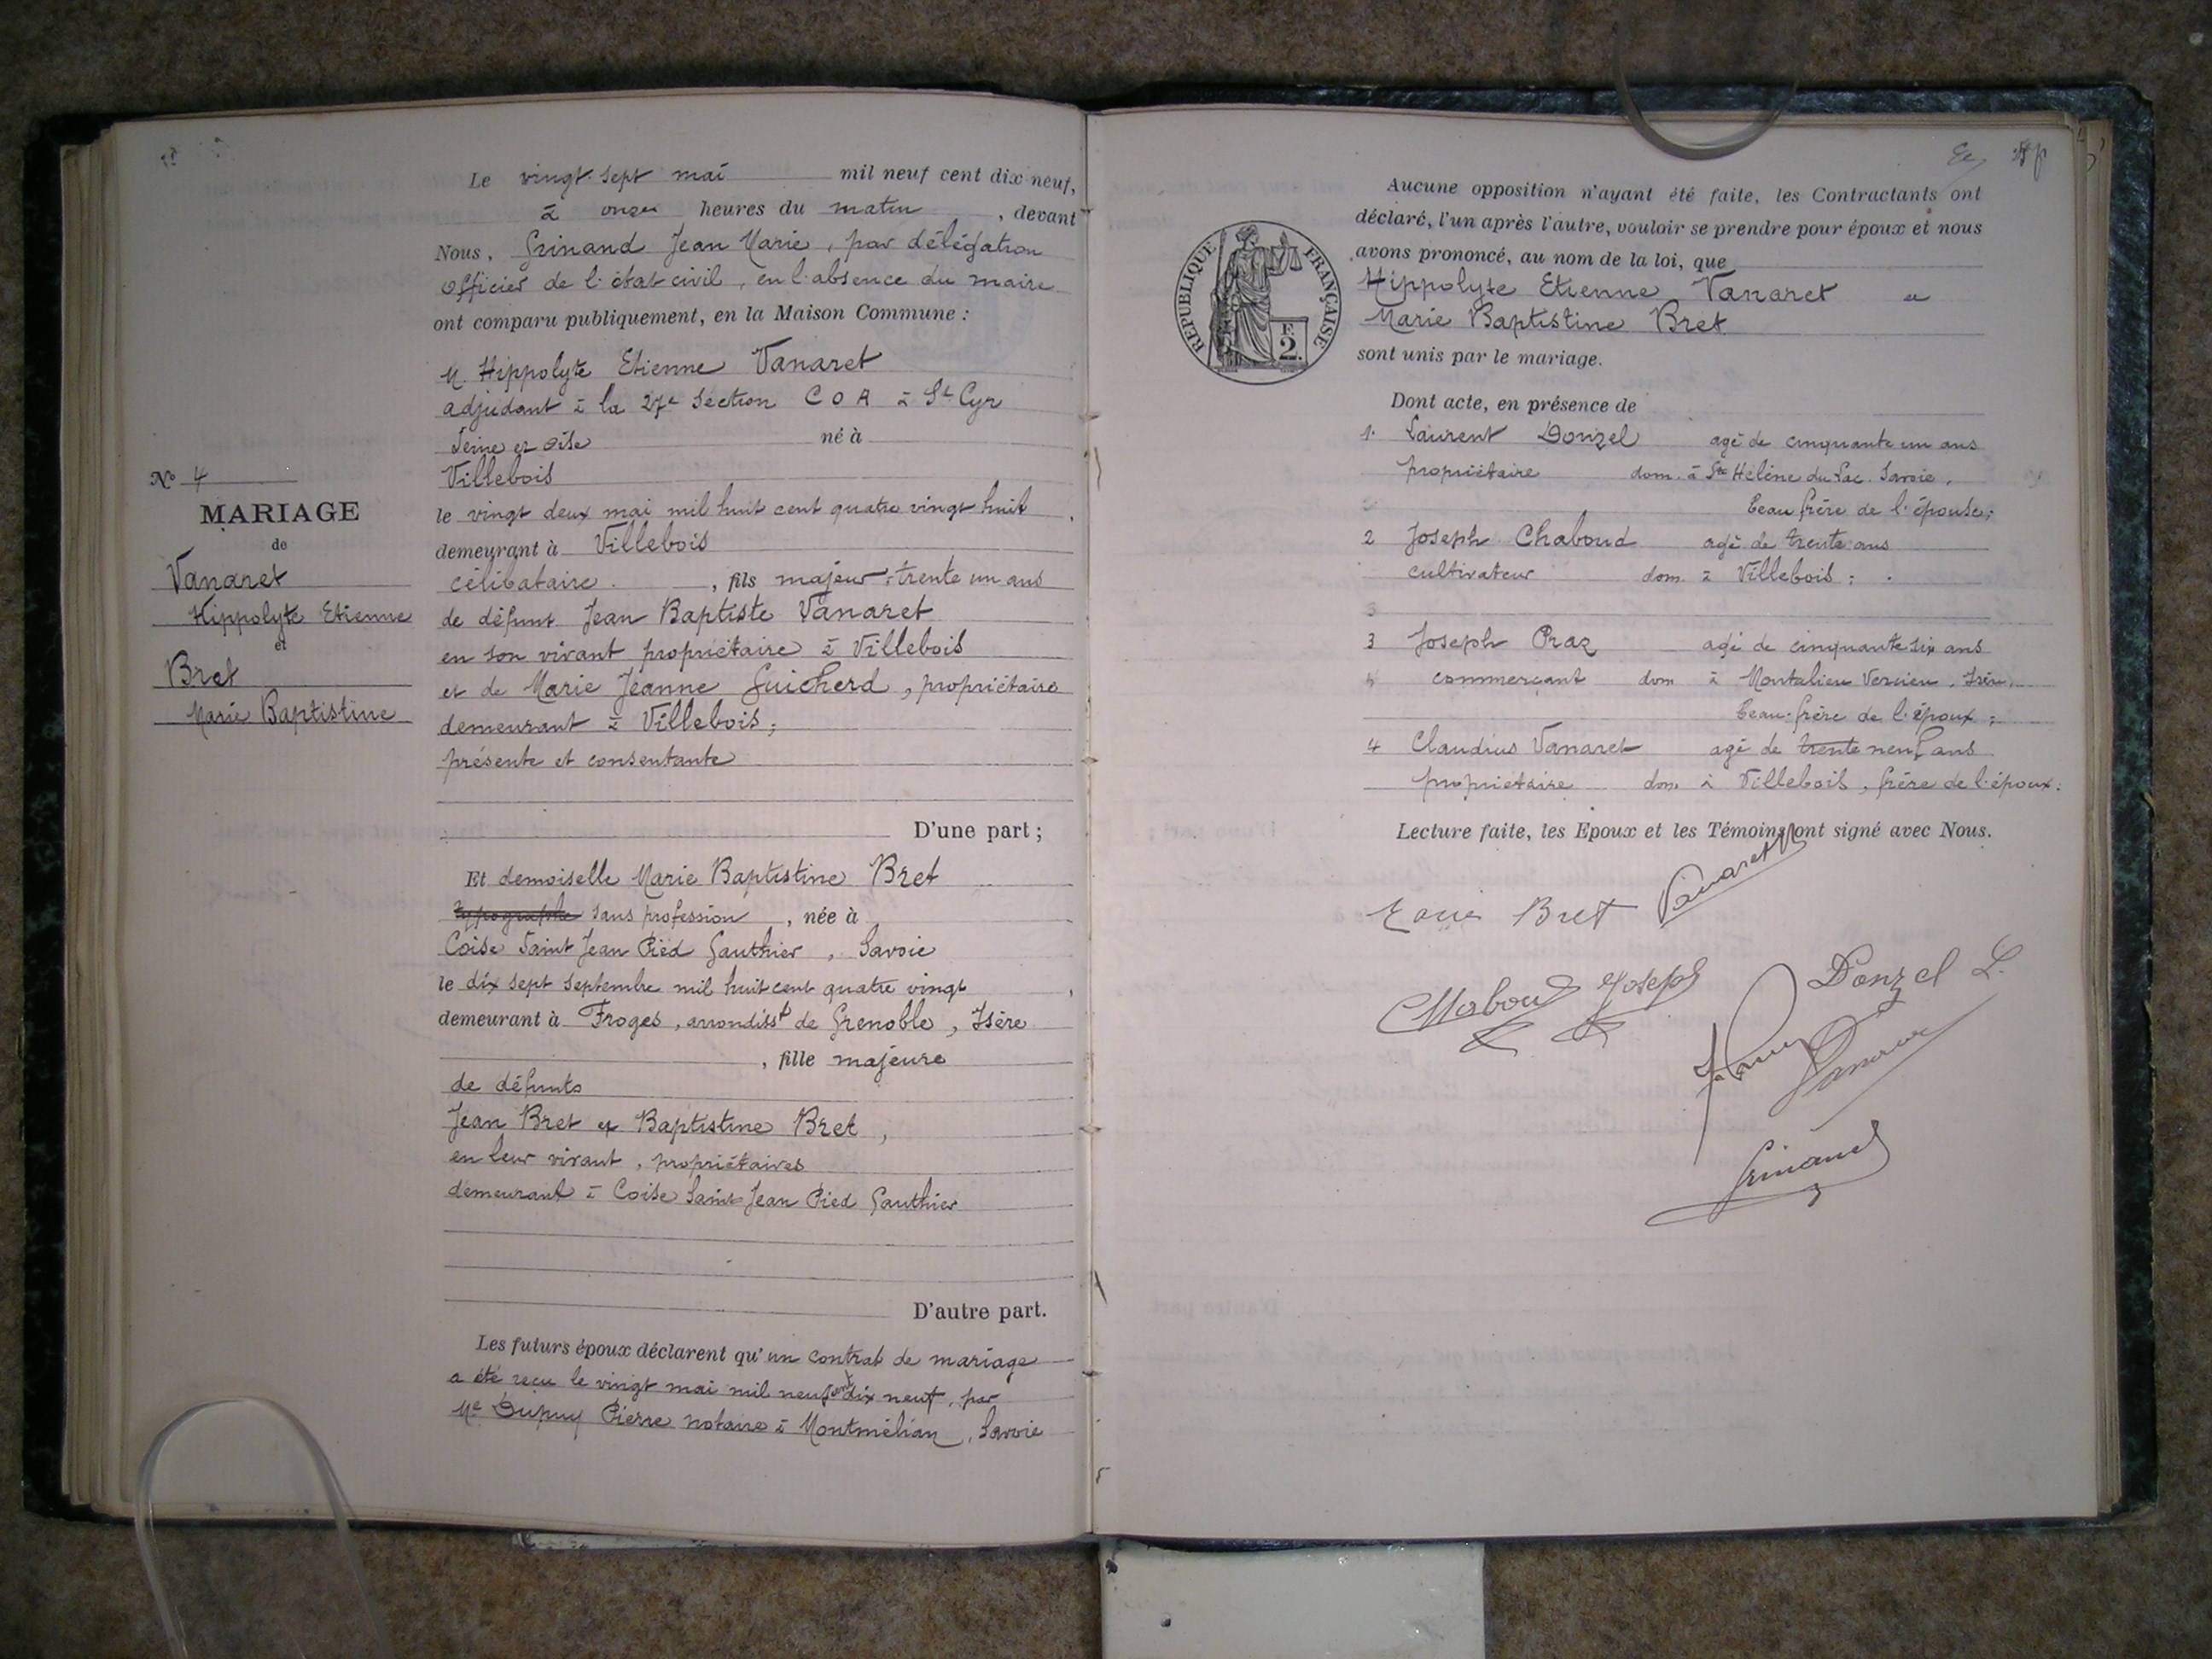 Le vingt sept mai mil neuf cent dix neuf,
à onze heures du matin, devant
Nous, Grinand Jean Marie, par délégation
officier de l'état civil, en l'absence du maire
ont comparu publiquement, en la Maison Commune :
M. Hippolyte Etienne Vanaret
adjudant à la 27e Section C O A à St Cyr
Seine et Oise né à
Villebois
le vingt deux mai mil huit cent quatre vingt huit,
demeurant à Villebois
célibataire, fils majeur, trente un ans
de défunt Jean Baptiste Vanaret
en son vivant propriétaire à Villebois
et de Marie Jeanne Guicherd, propriétaire
demeurant à Villebois;
présente et consentante
D'une part ;
N° 4
MARIAGE
de
Vanaret
Hippolyte Etienne
et
Bret
Marie Baptistine
Et demoiselle Marie Baptistine Bret
typographe sans profession, née à
Coise Saint Jean Pied Gauthier, Savoie
le dix sept septembre mil huit cent quatre vingt,
demeurant à Froges, arrondisst de Grenoble, Isère
, fille majeure
de défunts
Jean Bret et Baptistine Bret,
en leur vivant, propriétaires
demeurant à Coise Saint Jean Pied Gauthier
D'autre part.
Les futurs époux déclarent qu'un contrat de mariage
a été reçu le vingt mai mil neuf cent dix neuf, par
Me Dupuy Pierre notaire à Montmélian, Savoie
REPUBLIQUE FRANÇAISE
F.
2.
Aucune opposition n'ayant été faite, les Contractants ont
déclaré, l'un après l'autre, vouloir se prendre pour époux et nous
avons prononcé, au nom de la loi, que
Hippolyte Etienne Vanaret et
Marie Baptistine Bret
sont unis par le mariage.
Dont acte, en présence de
1. Laurent Donzel agé de cinquante un ans
propriétaire dom. à Ste Hélène du Lac. Savoie,
beau frère de l'épouse;
2 Joseph Chaboud agé de trente ans
cultivateur dom. à Villebois;
3 Joseph Praz agé de cinquante six ans
commerçant dom à Montalieu Vercieu, Isère,
beau-frère de l'époux;
4 Claudius Vanaret agé de trente neuf ans
propriétaire dom. à Villebois, frère de l'époux.
Lecture faite, les Epoux et les Témoins ont signé avec Nous.
Bret Vanaret
Chaboud Joseph
Donzel L.
Praz
Vanaret
Grinand